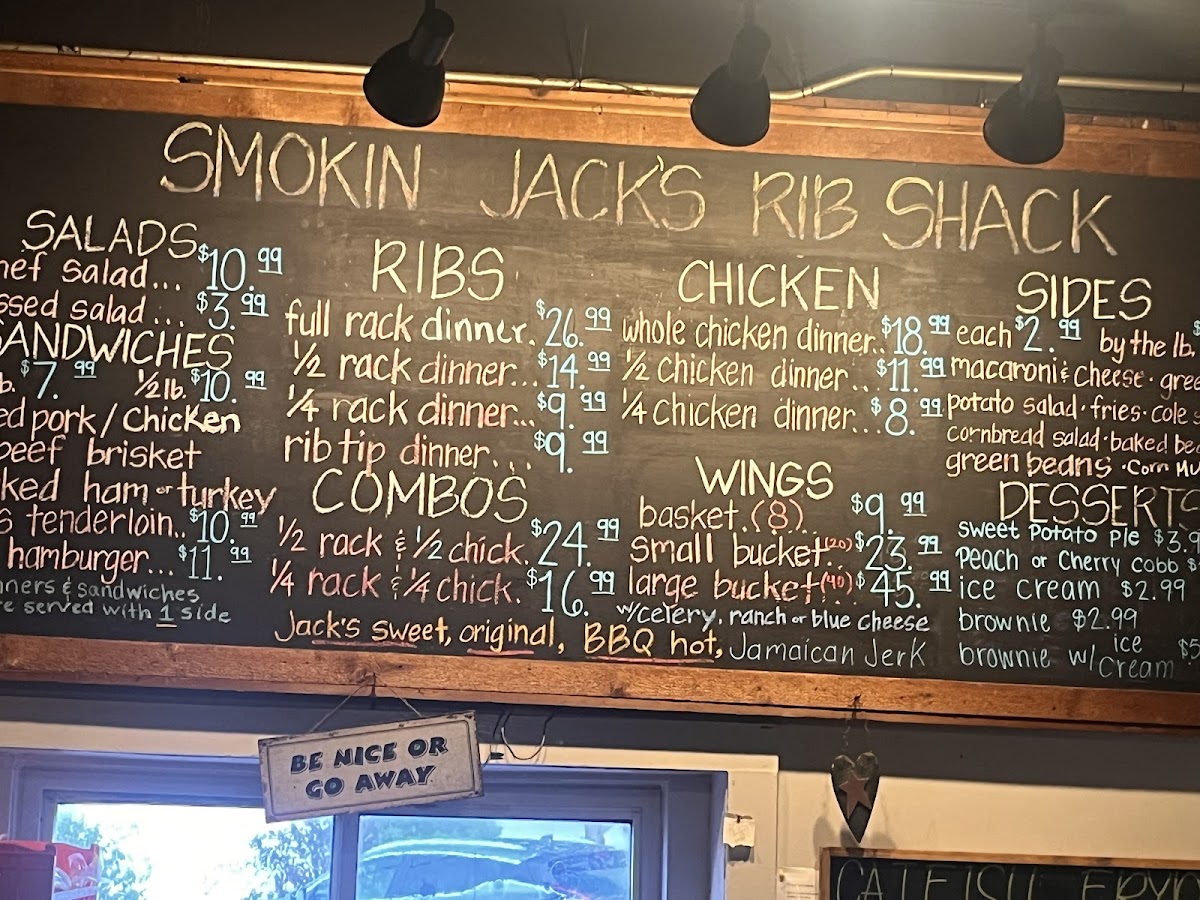 SMOKIN JACK'S RIB SHACK
SALADS
salad... $10.99
salad ... $3.99
SANDWICHES
$7.99 ½lb. $10.99
pork / chicken
beef brisket
ham or turkey
tenderloin.. $10.99
hamburger... $11.99
& sandwiches
served with 1 side
RIBS
full rack dinner. $26.99
½ rack dinner... $14.99
¼ rack dinner... $9.99
rib tip dinner... $9.99
COMBOS
½ rack & ½ chick. $24.99
¼ rack & ¼ chick. $16.99
CHICKEN
whole chicken dinner.. $18.99
½ chicken dinner... $11.99
¼ chicken dinner... $8.99
WINGS
basket.(8).. $9.99
small bucket..(20) $23.99
large bucket(40). $45.99
w/celery, ranch or blue cheese
Jack's sweet, original, BBQ hot, Jamaican Jerk
SIDES
each $2.99 by the lb.
macaroni & cheese ·
potato salad · fries · cole
cornbread salad · baked
green beans · Corn
DESSERTS
sweet Potato Pie
Peach or Cherry cobb
ice cream $2.99
brownie $2.99
brownie w/ ice cream
BE NICE OR
GO AWAY
CATFISH